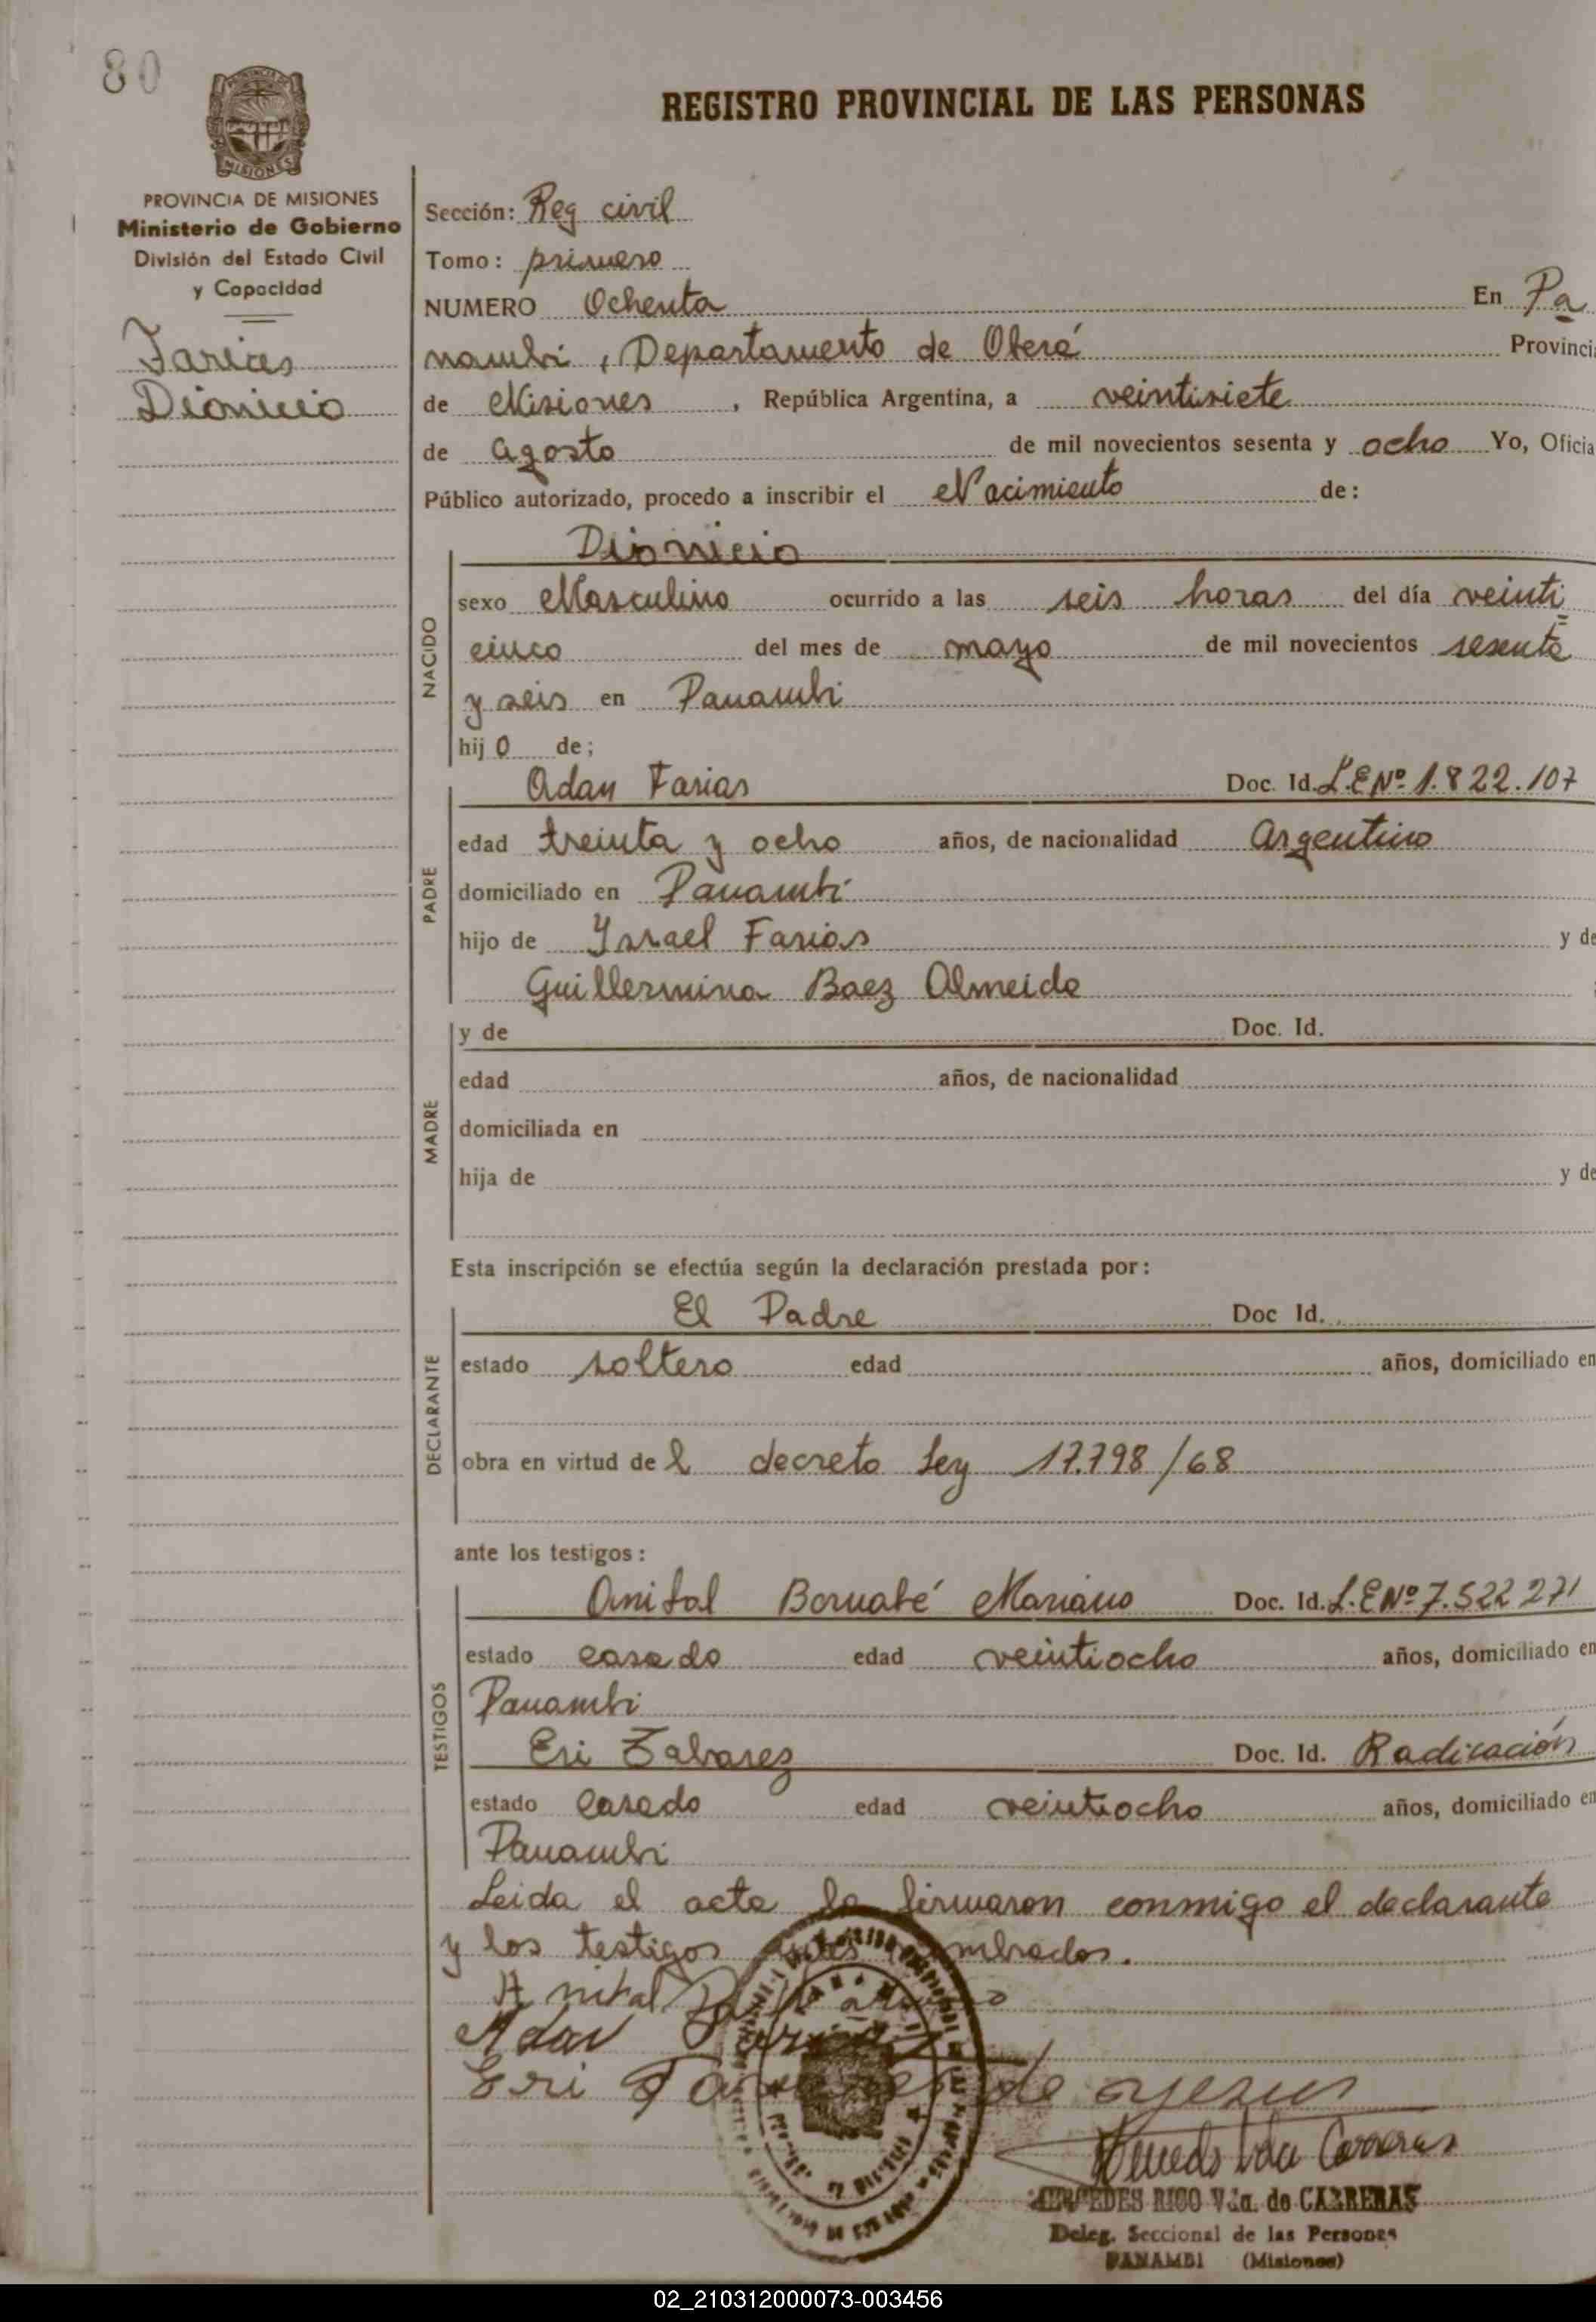 80
REGISTRO PROVINCIAL DE LAS PERSONAS
PROVINCIA DE MISIONES
Ministerio de Gobierno
División del Estado Civil
y Capacidad
Farias
Dionicio
Sección: Reg civil
Tomo: primero
NUMERO Ochenta En Pa
nambi, Departamento de Oberá Provinci
de Misiones, República Argentina, a veintisiete
de agosto de mil novecientos sesenta y ocho Yo, Oficia
Público autorizado, procedo a inscribir el Nacimiento de:
NACIDO
Dionicio
sexo Masculino ocurrido a las seis horas del día veinti
cinco del mes de mayo de mil novecientos sesenta
y seis en Panambi
hij o de;
PADRE
Adan Farias Doc. Id. L.E Nº 1.822.107
edad treinta y ocho años, de nacionalidad Argentino
domiciliado en Panambi
hijo de Ysrael Farias y de
Guillermina Baez Almeida
MADRE
y de Doc. Id.
edad años, de nacionalidad
domiciliada en
hija de y de
Esta inscripción se efectúa según la declaración prestada por:
DECLARANTE
El Padre Doc Id.
estado soltero edad años, domiciliado en
obra en virtud de l decreto Ley 17.798/68
ante los testigos:
TESTIGOS
Anibal Bernabé Mariano Doc. Id. L.E Nº 7.522 271
estado casado edad veintiocho años, domiciliado en
Panambi
Eri Tabarez Doc. Id. Radicación
estado casado edad veintiocho años, domiciliado en
Panambi
Leida el acta la firmaron conmigo el declarante
y los testigos antes nombrados.
Anibal
Adan Farias
Eri de
Carreras
MERCEDES RICO Vda. de CARRERAS
Deleg. Seccional de las Personas
PANAMBI (Misiones)
02_210312000073-003456